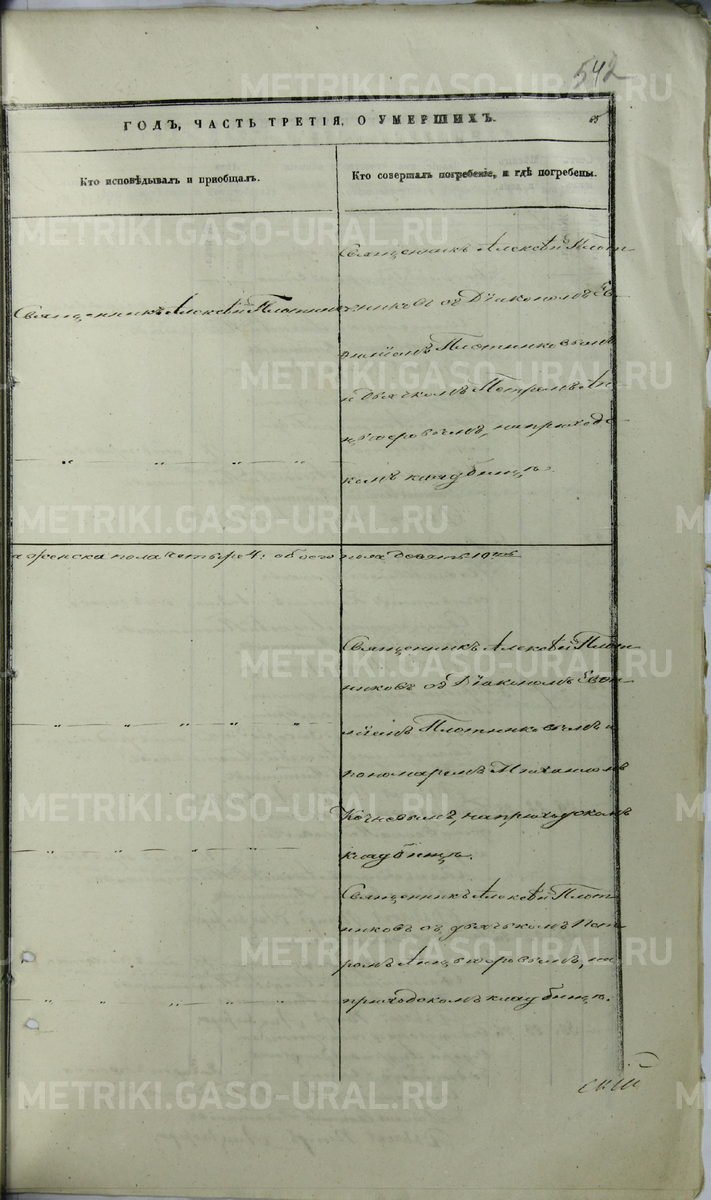 542
ГОДЪ, ЧАСТЬ ТРЕТІЯ, О УМЕРШИХЪ.
Кто исповѣдывалъ и приобщалъ.
Кто совершалъ погребеніе, и гдѣ погребены.
Священникъ Алексѣй Плотни
Священникъ Алексѣй Плот
никовъ съ Діакономъ Ев
ѳиміемъ Плотниковымъ
и дьячкомъ Петромъ
на приходс
комъ кладбищѣ.
а женска пола четыре 4: обоего пола девять
Священникъ Алексѣй Плот
никовъ съ Діакономъ Евѳи
міемъ Плотниковымъ и
пономаремъ Михаиломъ
на приходскомъ
кладбищѣ.
Священникъ Алексѣй Плот
никовъ съ дьячкомъ Пет
ромъ на
приходскомъ кладбищѣ.
METRIKI.GASO-URAL.RU